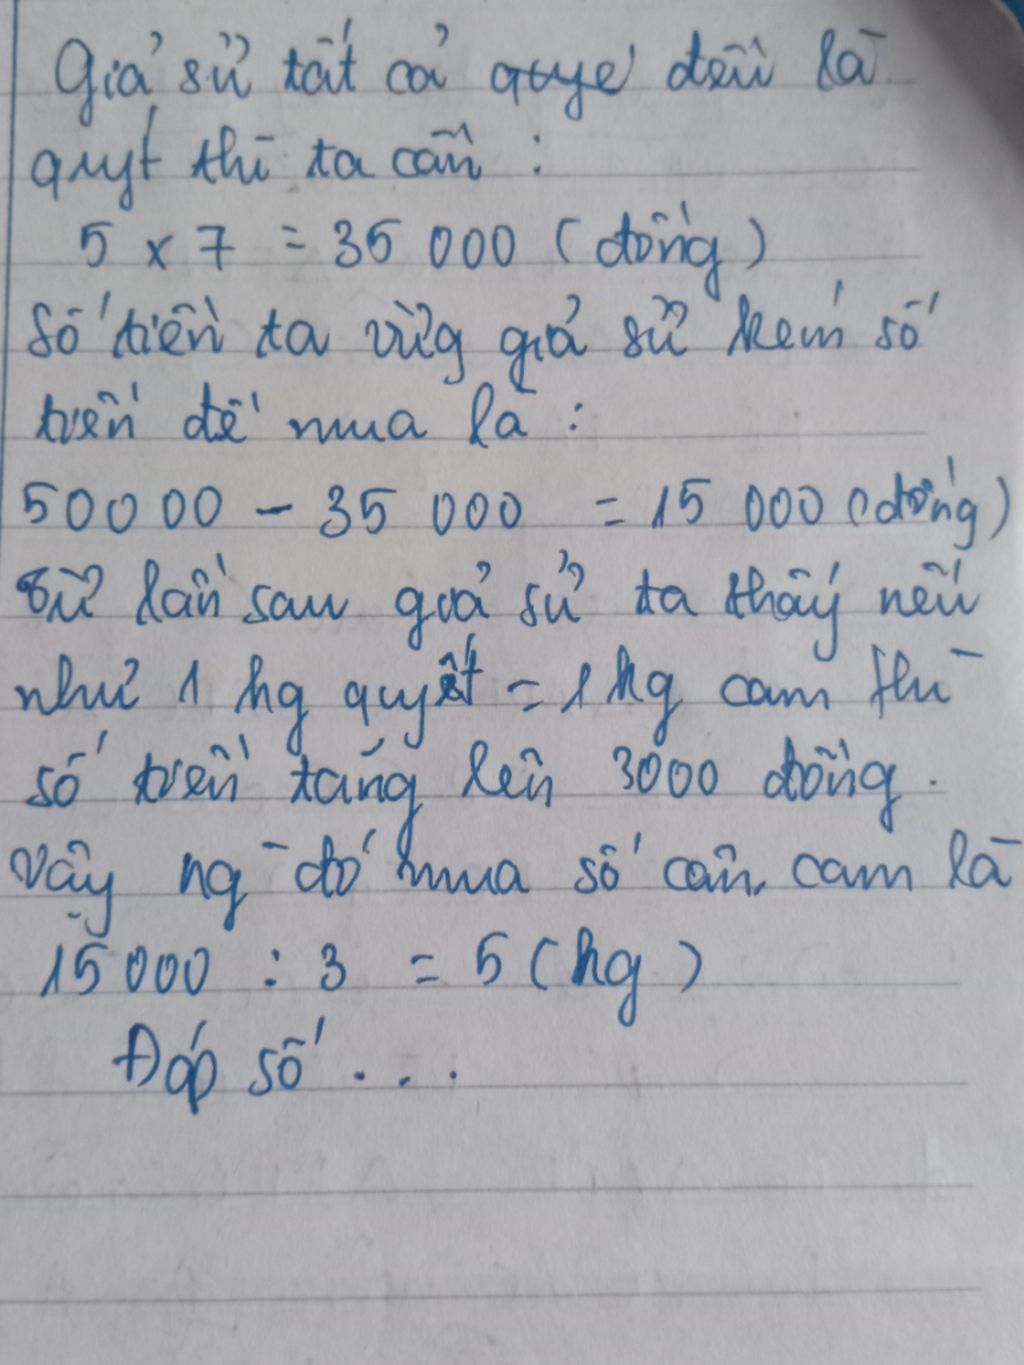 Giả sử tất cả quye đều là
quýt thì ta cần :
5 x 7 = 35 000 ( đồng )
Số tiền ta vừg giả sử kém số
tiền để mua là :
50000 - 35 000 = 15 000 (đồng)
Sử lần sau giả sử ta thấy nếu
như 1 kg quýt = 1 kg cam thì
số tiền tăng lên 3000 đồng .
Vậy ng đó mua số cân cam là
15000 : 3 = 5 ( kg )
Đáp số . . .